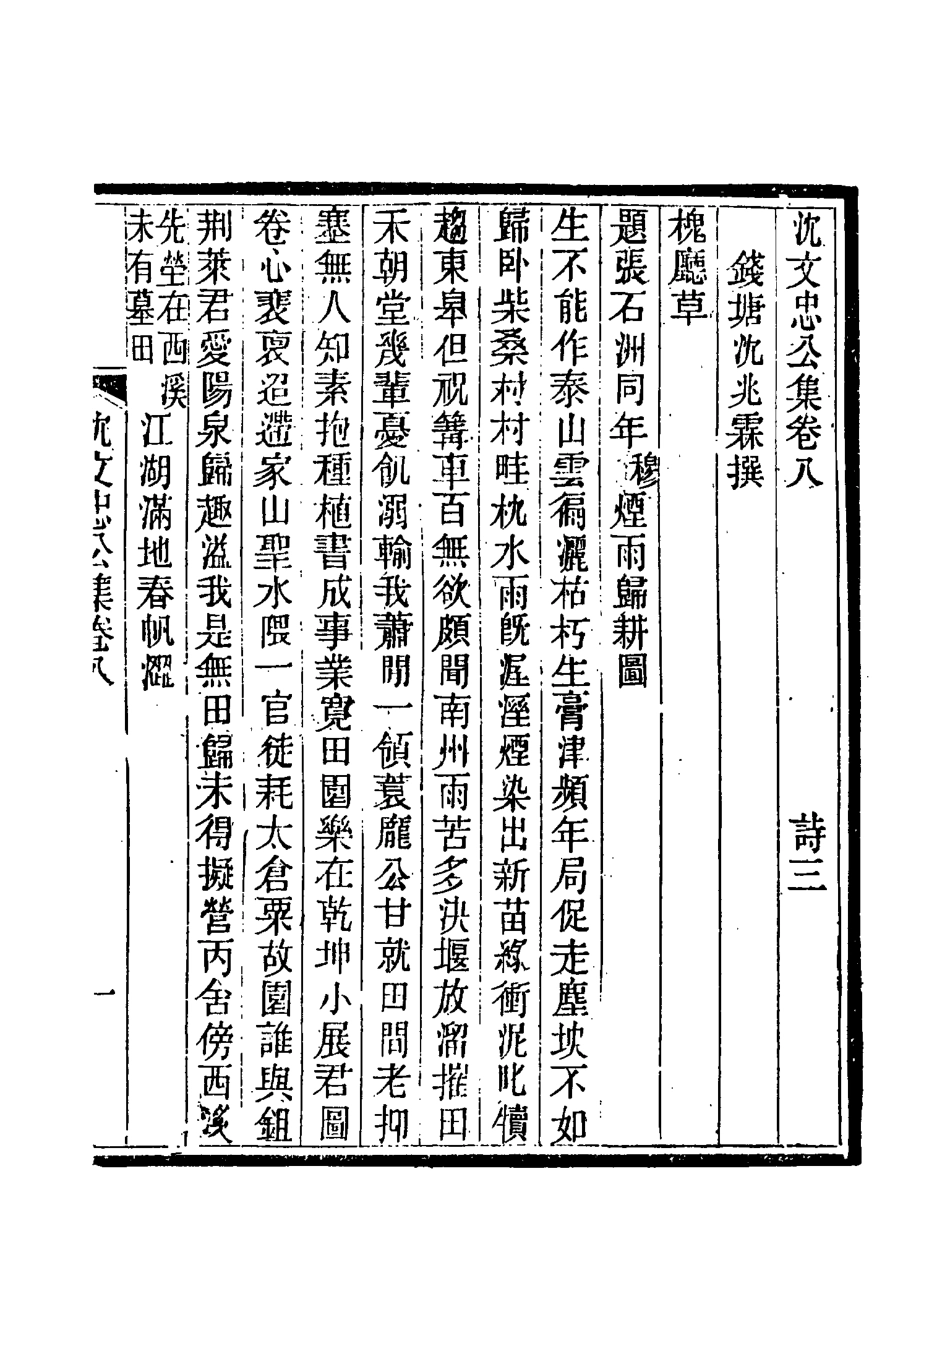 沈文忠公集卷八　詩三
錢塘沈兆霖撰
槐廳草
題張石洲同年穆煙雨歸耕圖
生不能作泰山雲徧灑枯朽生膏津頻年局促走塵坱不如
歸卧柴桑村村畦枕水雨旣渥溼煙染出新苗綠衝泥叱犢
趨東皐但祝篝車百無欲頗聞南州雨苦多決堰放溜摧田
禾朝堂幾輩憂飢溺輸我蕭閒一領蓑龐公甘就田間老抑
塞無人知素抱種植書成事業寛田園樂在乾坤小展君圖
卷心裴褱迢遰家山聖水隈一官徒耗太倉粟故園誰與鉏
荆萊君愛陽泉歸趣溢我是無田歸未得擬營丙舍傍西溪
先塋在西溪
未有墓田
江湖滿地春帆濕
沈文忠公集卷八
一